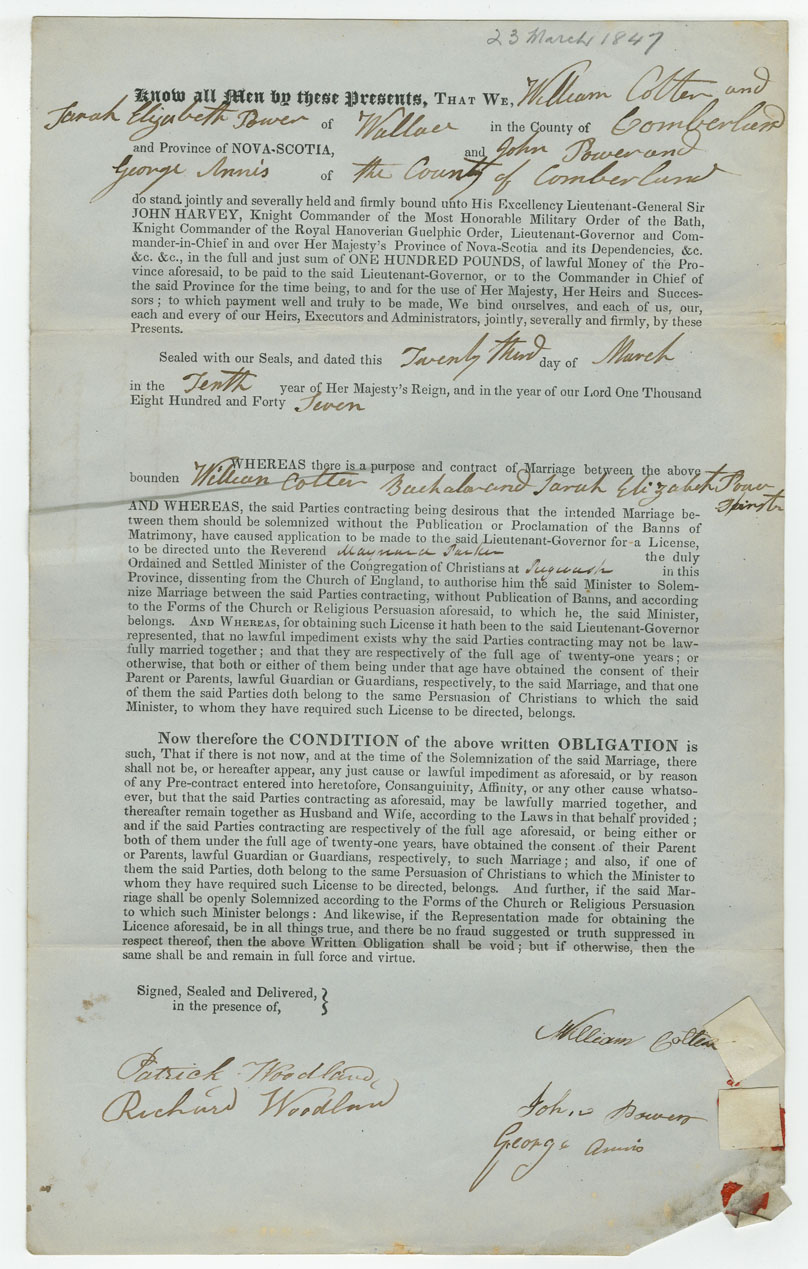 23 March 1847
Know all Men by these Presents, THAT WE, William Cotter and
Sarah Elizabeth Power of Wallace in the County of Comberland
and Province of NOVA-SCOTIA, and John Power and
George Annis of the County of Comberland
do stand jointly and severally held and firmly bound unto His Excellency Lieutenant-General Sir
JOHN HARVEY, Knight Commander of the Most Honorable Military Order of the Bath,
Knight Commander of the Royal Hanoverian Guelphic Order, Lieutenant-Governor and Com-
mander-in-Chief in and over Her Majesty's Province of Nova-Scotia and its Dependencies, &c.
&c. &c., in the full and just sum of ONE HUNDRED POUNDS, of lawful Money of the Pro-
vince aforesaid, to be paid to the said Lieutenant-Governor, or to the Commander in Chief of
the said Province for the time being, to and for the use of Her Majesty, Her Heirs and Succes-
sors ; to which payment well and truly to be made, We bind ourselves, and each of us, our,
each and every of our Heirs, Executors and Administrators, jointly, severally and firmly, by these
Presents.
Sealed with our Seals, and dated this Twenty third day of March
in the Tenth year of Her Majesty's Reign, and in the year of our Lord One Thousand
Eight Hundred and Forty Seven
WHEREAS there is a purpose and contract of Marriage between the above
bounden William Cotter Bachalor and Sarah Elizabeth Power
Spinster
AND WHEREAS, the said Parties contracting being desirous that the intended Marriage be-
tween them should be solemnized without the Publication or Proclamation of the Banns of
Matrimony, have caused application to be made to the said Lieutenant-Governor for a License,
to be directed unto the Reverend Maynard Parker the duly
Ordained and Settled Minister of the Congregation of Christians at Pugwash in this
Province, dissenting from the Church of England, to authorise him the said Minister to Solem-
nize Marriage between the said Parties contracting, without Publication of Banns, and according
to the Forms of the Church or Religious Persuasion aforesaid, to which he, the said Minister,
belongs. AND WHEREAS, for obtaining such License it hath been to the said Lieutenant-Governor
represented, that no lawful impediment exists why the said Parties contracting may not be law-
fully married together ; and that they are respectively of the full age of twenty-one years ; or
otherwise, that both or either of them being under that age have obtained the consent of their
Parent or Parents, lawful Guardian or Guardians, respectively, to the said Marriage, and that one
of them the said Parties doth belong to the same Persuasion of Christians to which the said
Minister, to whom they have required such License to be directed, belongs.
Now therefore the CONDITION of the above written OBLIGATION is
such, That if there is not now, and at the time of the Solemnization of the said Marriage, there
shall not be, or hereafter appear, any just cause or lawful impediment as aforesaid, or by reason
of any Pre-contract entered into heretofore, Consanguinity, Affinity, or any other cause whatso-
ever, but that the said Parties contracting as aforesaid, may be lawfully married together, and
thereafter remain together as Husband and Wife, according to the Laws in that behalf provided ;
and if the said Parties contracting are respectively of the full age aforesaid, or being either or
both of them under the full age of twenty-one years, have obtained the consent of their Parent
or Parents, lawful Guardian or Guardians, respectively, to such Marriage ; and also, if one of
them the said Parties, doth belong to the same Persuasion of Christians to which the Minister to
whom they have required such License to be directed, belongs. And further, if the said Mar-
riage shall be openly Solemnized according to the Forms of the Church or Religious Persuasion
to which such Minister belongs : And likewise, if the Representation made for obtaining the
Licence aforesaid, be in all things true, and there be no fraud suggested or truth suppressed in
respect thereof, then the above Written Obligation shall be void ; but if otherwise, then the
same shall be and remain in full force and virtue.
Signed, Sealed and Delivered, }
in the presence of,
William Cotter
Patrick Woodland,
Richard Woodland
John Power
George Annis